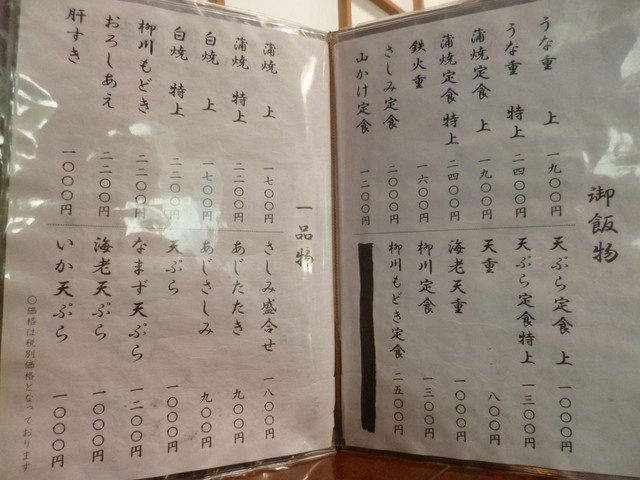 御飯物
うな重 上 一九〇〇円
うな重 特上 二四〇〇円
蒲焼定食 上 一九〇〇円
蒲焼定食 特上 二四〇〇円
鉄火重 一六〇〇円
さしみ定食 二〇〇〇円
山かけ定食 一二〇〇円
天ぷら定食 上 一〇〇〇円
天ぷら定食特上 一三〇〇円
天重 八〇〇円
海老天重 一〇〇〇円
柳川定食 一三〇〇円
柳川もどき定食 二五〇〇円
一品物
蒲焼 上 一七〇〇円
蒲焼 特上 二二〇〇円
白焼 上 一七〇〇円
白焼 特上 二二〇〇円
柳川もどき 二二〇〇円
おろしあえ 二二〇〇円
肝すき 一〇〇〇円
さしみ盛合せ 一八〇〇円
あじたたき 九〇〇円
あじさしみ 九〇〇円
天ぷら 一〇〇〇円
なまず天ぷら 一二〇〇円
海老天ぷら 一〇〇〇円
いか天ぷら 一〇〇〇円
〇価格は税別価格となっております